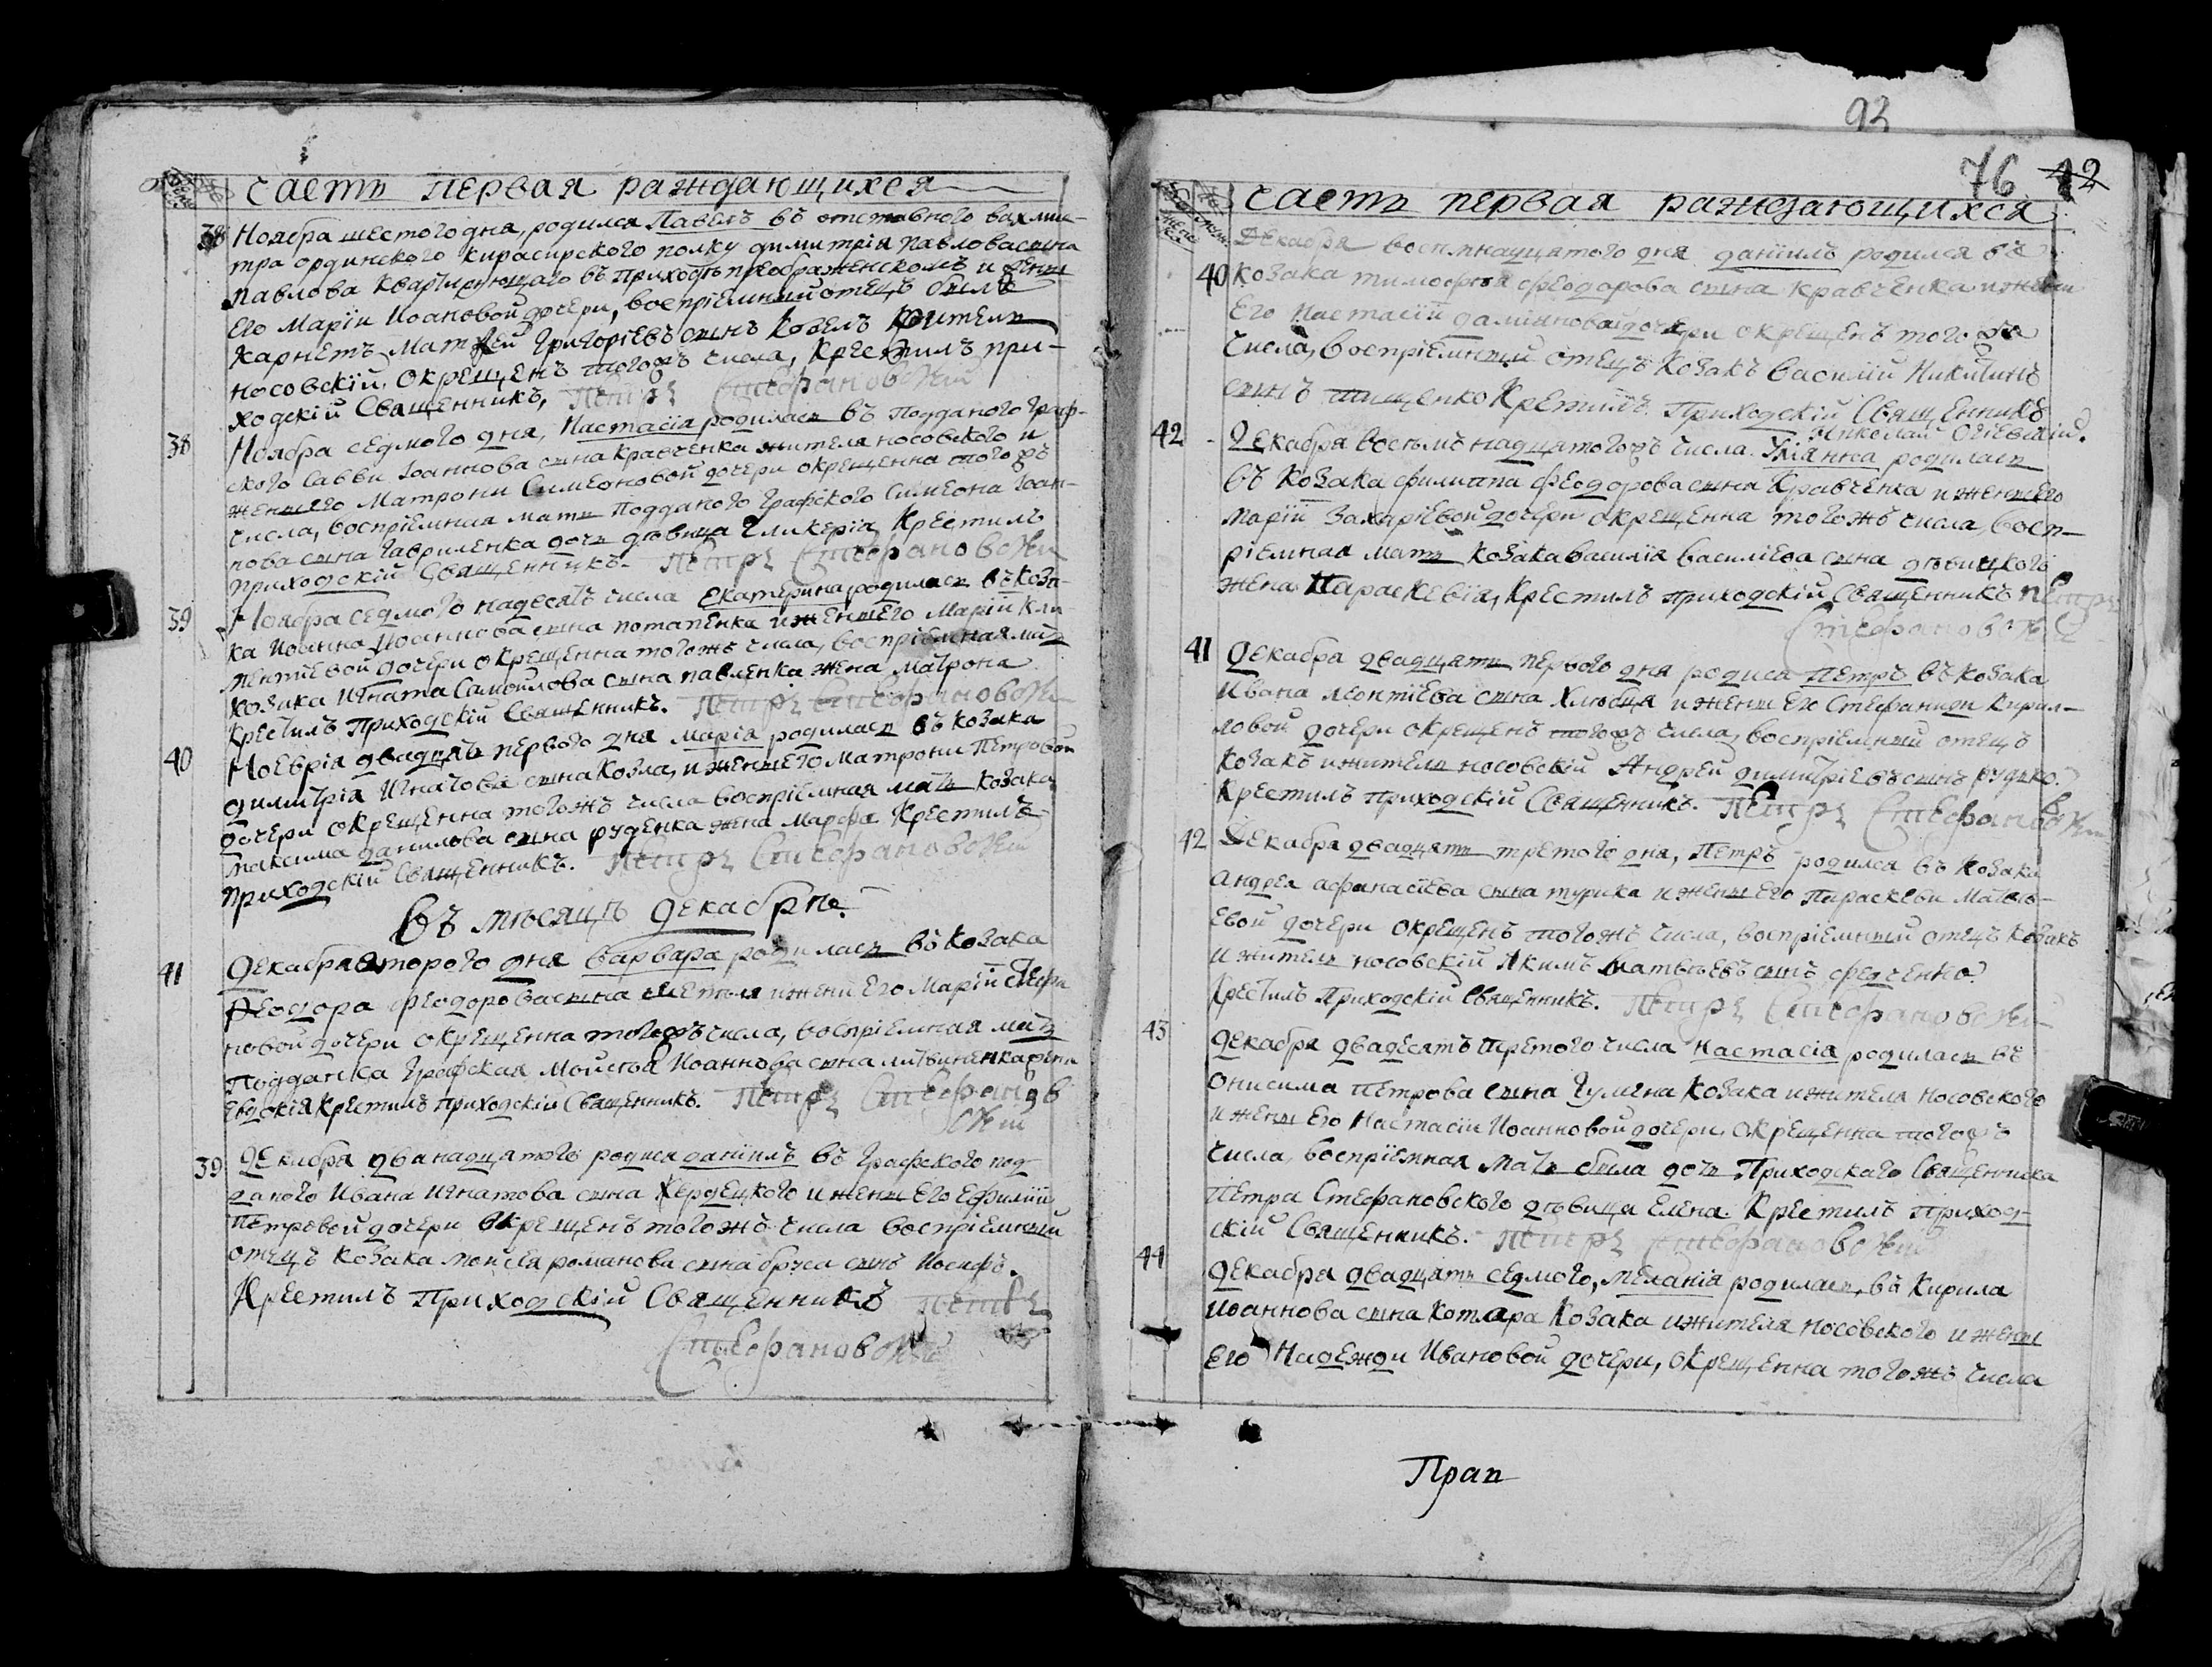 часть первая раждающихся
38 Ноября шестого дня, родился Павелъ въ отставного вахми-
тра ординского кирасирского полку димитрія павлова сына
павлова квартирующаго въ приходѣ преображенскомъ и жени
его Маріи Иоановой дочери, воспріемный отецъ билъ
карнетъ Матфей Григоріевъ синъ Козелъ жителъ
носовскій. окрещенъ тогожъ числа, крестилъ при-
ходскій Священникъ, Петръ Стефановскій
38 Ноября седмого дня, Настасія родилась въ подданого граф-
ского Савви Іоаннова сина кравченка жителя носовского и
жени его Матрони Симеоновой дочери окрещенна тогожъ
числа, воспріемная мать подданого графского Симеона Іоан-
нова сына Гавриленка дочь дѣвица Гликерія Крестилъ
приходскій Священникъ. Петръ Стефановскій
39 Ноября седмого надесять числа екатерина родилась въ коза-
ка Иоанна Иоаннова сына потапенка и жени его Маріи Кли-
ментіевой дочери окрещенна тогожъ числа, воспріемная мать
козака Игната Самойлова сына павленка жена Матрона
крестилъ Приходскій Священникъ. Петръ Стефановскій
40 Ноеврія двадцять первого дня марія родилась въ козака
димитрія Игнатова сина Козла, и жени его Матрони Петровой
дочери окрещенна тогожъ числа воспріемная мать козака
максима данилова сына руденка жена Марфа Крестилъ
приходскій Священникъ. Петръ Стефановскій
въ мѣсяцѣ декабрѣ
41 Декабря второго дня варвара родилась въ козака
Феодора феодорова сына и жени его Маріи Стефа
новой дочери окрещенна тогожъ числа, воспріемная мать
подданка Графская Мойсѣя Иоаннова сына литвиненка жена
Евдокія крестилъ приходскій Священникъ. Петръ Стефанов
скій
39 Декабря дванадцятого родися даніилъ въ Графского под
даного Ивана Игнатова сына Хердецкого и жени его Ефиміи
Петровой дочери окрещенъ тогожъ числа воспріемный
отецъ козака Мойсея романова сына бруса синъ Иосифъ.
Крестилъ Приходскій Священникъ Петръ
Стефановскій
93
76 42
часть первая раждающихся
Декабря восемнадцятого дня даніилъ родился въ
40 козака тимофѣя феодорова сына кравченка и жени
его Настасіи даміановой дочери окрещенъ тогожъ
числа, воспріемный отецъ козакъ Василій Никитинъ
синъ Крестилъ Приходскій Священникъ
Николай Огіевскій.
42 Декабря восемънадцятогожъ числа. Уліянна родилась
въ козака филиппа феодорова сына Кравченка и жени его
маріи Захаріевой дочери окрещенна тогожъ числа, восп-
ріемная мать козака василія василіева сына дѣвицкого
жена Параскевія, крестилъ приходскій Священникъ Петръ
Стефановскій
41 Декабря двадцять первого дня родися Петръ въ козака
Ивана леонтіева сына Хлѣбця и жени его Стефаниди Кирил-
ловой дочери окрещенъ тогожъ числа, воспріемный отецъ
козакъ и жителъ носовскій Андрей димитріевъ синъ рудко.
Крестилъ приходскій Священникъ. Петръ Стефановскій
42 Декабря двадцять третого дня, Петръ родился въ козака
андрея афанасіева сына турика и жени его параскеви Матвѣ-
евой дочери окрещенъ тогожъ числа, воспріемный отецъ козакъ
и жителъ носовскій Якимъ матвѣевъ синъ федченко.
Крестилъ Приходскій Священникъ. Петръ Стефановскій
43 Декабря двадесять третого числа настасія родилась въ
онисима петрова сына козака и жителя носовского
и жени его Настасіи Иоанновой дочери. окрещенна тогожъ
числа, воспріемная мать била дочь Приходскаго Священника
Петра Стефановского дѣвица Елена. Крестилъ приход-
скій Священникъ. Петръ Стефановскій
44 Декабря двадцять седмого, меланія родилась, въ Кирила
иоаннова сына котляра козака и жителя носовского и жени
его Надежди Ивановой дочери, окрещенна тогожъ числа